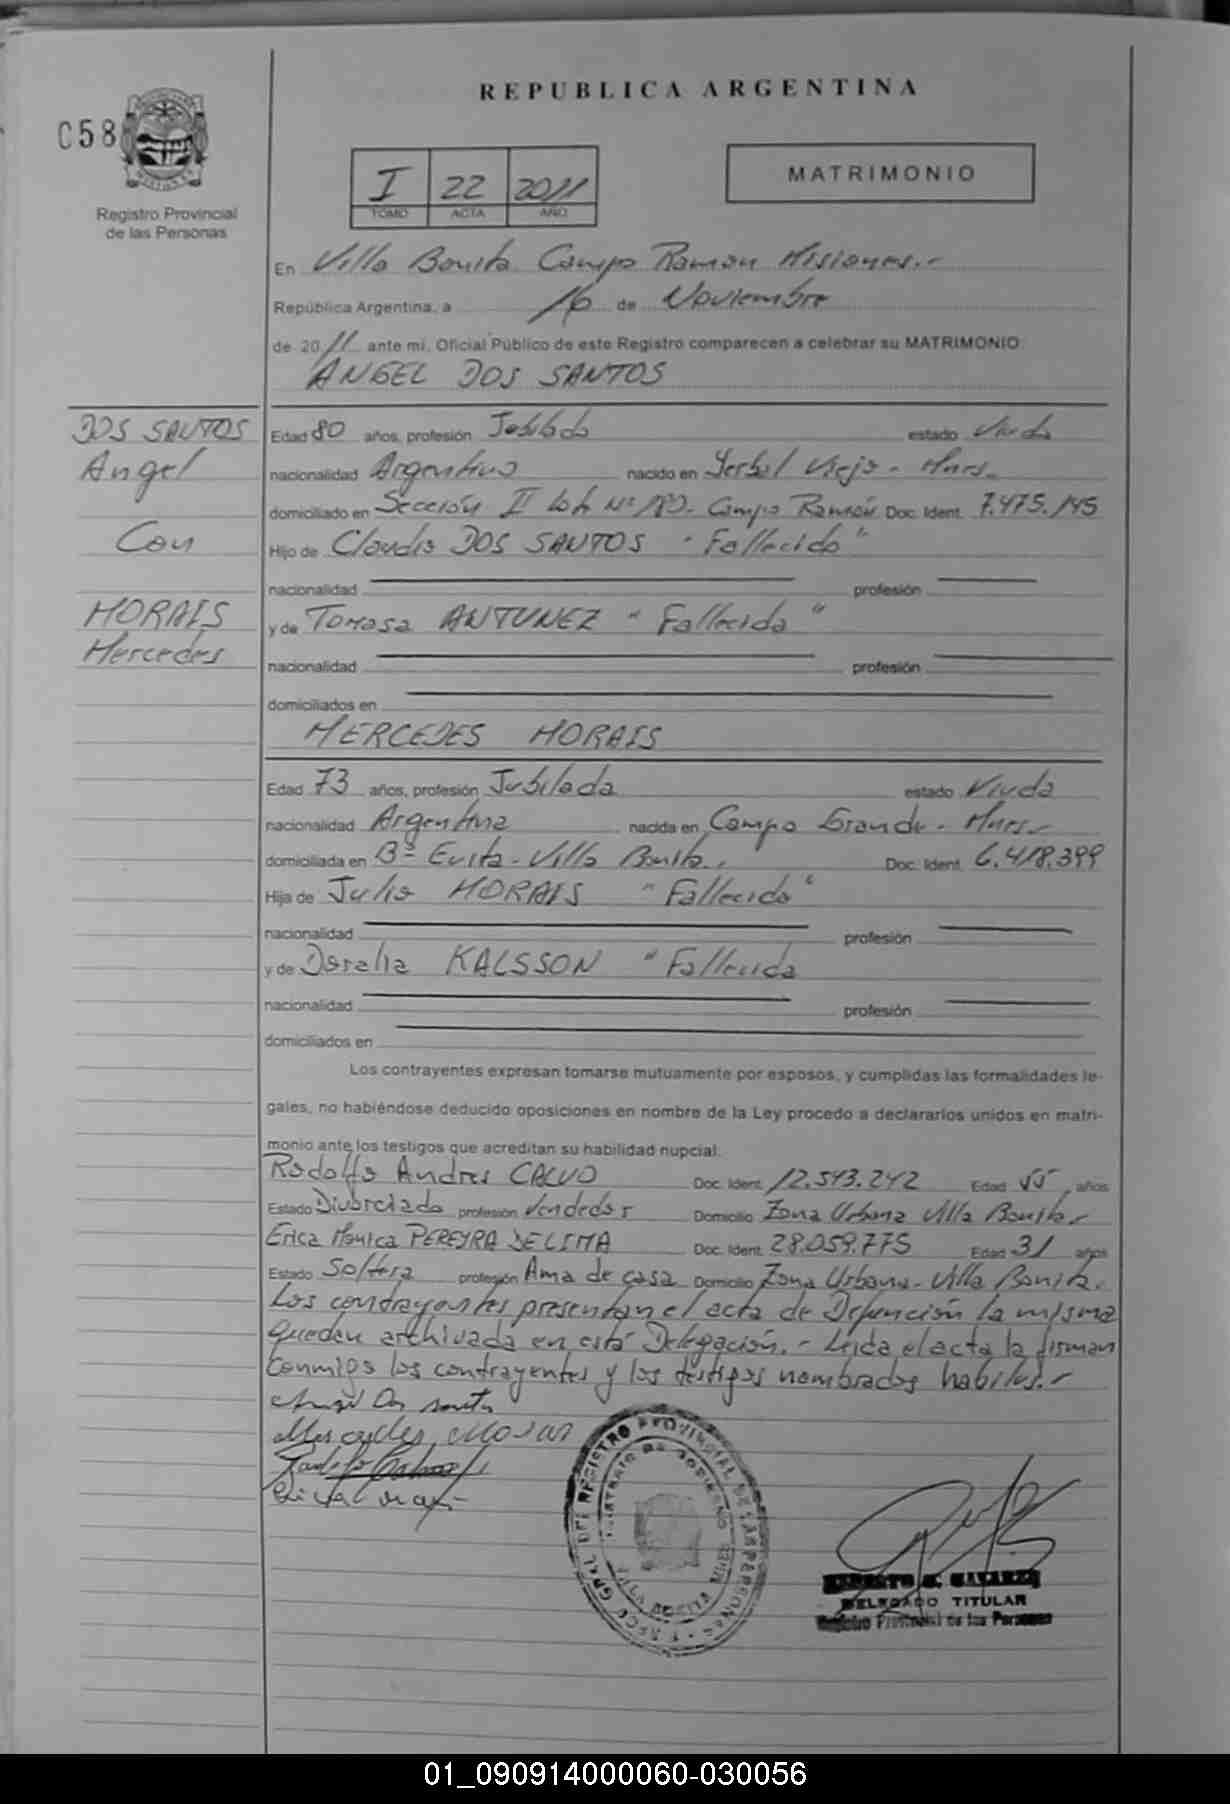 REPUBLICA ARGENTINA
C58
I 22 2011
TOMO ACTA AÑO
MATRIMONIO
Registro Provincial
de las Personas
En Villa Bonita Campo Ramon Misiones.-
República Argentina, a 16 de Noviembre
de 2011 ante mi, Oficial Público de este Registro comparecen a celebrar su MATRIMONIO:
ANGEL DOS SANTOS
DOS SANTOS
Angel
Con
MORAIS
Mercedes
Edad 80 años, profesión Jubilado estado Viudo
nacionalidad Argentino nacido en Yerbal Viejo - Mnes.
domiciliado en Sección II Lote Nº 180. Campo Ramón Doc. Ident. 7.475.145
Hijo de Claudio DOS SANTOS "Fallecido"
nacionalidad profesión
y de Tomasa ANTUNEZ "Fallecida"
nacionalidad profesión
domiciliados en
MERCEDES MORAIS
Edad 73 años, profesión Jubilada estado Viuda
nacionalidad Argentina nacida en Campo Grande - Mnes.-
domiciliada en Bº Evita - Villa Bonita. Doc. Ident. 6.418.399
Hija de Julio MORAIS "Fallecido"
nacionalidad profesión
y de KALSSON "Fallecida
nacionalidad profesión
domiciliados en
Los contrayentes expresan tomarse mutuamente por esposos, y cumplidas las formalidades le-
gales, no habiéndose deducido oposiciones en nombre de la Ley procedo a declararlos unidos en matri-
monio ante los testigos que acreditan su habilidad nupcial:
Rodolfo Andres CALVO Doc. Ident. 12.543.242 Edad 55 años
Estado Divorciado profesión Vendedor Domicilio Zona Urbana Villa Bonita-
Erica Monica PEREYRA DE LIMA Doc. Ident. 28.059.775 Edad 31 años
Estado Soltera profesión Ama de casa Domicilio Zona Urbana - Villa Bonita.
Los contrayentes presentan el acta de Defunción la misma
quedan archivada en está Delegación.- Leida el acta la firman
conmigo los contrayentes y los testigos nombrados habiles.-
Angel Dos santos
Mercedes Morais
REGISTRO PROVINCIAL DE LAS PERSONAS
MINISTERIO DE GOBIERNO
VILLA BONITA MNES
DELEGADO TITULAR
Registro Provincial de las Personas
01_090914000060-030056